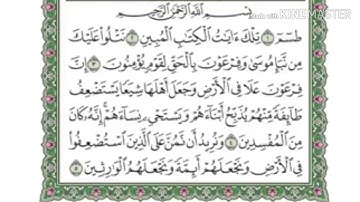 Made with KINEMASTER
بِسْمِ اللَّهِ الرَّحْمَٰنِ الرَّحِيمِ
طسٓمٓ ١ تِلْكَ ءَايَٰتُ ٱلْكِتَٰبِ ٱلْمُبِينِ ٢ نَتْلُوا۟ عَلَيْكَ
مِن نَّبَإِ مُوسَىٰ وَفِرْعَوْنَ بِٱلْحَقِّ لِقَوْمٍ يُؤْمِنُونَ ٣ إِنَّ
فِرْعَوْنَ عَلَا فِى ٱلْأَرْضِ وَجَعَلَ أَهْلَهَا شِيَعًا يَسْتَضْعِفُ
طَآئِفَةً مِّنْهُمْ يُذَبِّحُ أَبْنَآءَهُمْ وَيَسْتَحْىِۦ نِسَآءَهُمْ ۚ إِنَّهُۥ كَانَ
مِنَ ٱلْمُفْسِدِينَ ٤ وَنُرِيدُ أَن نَّمُنَّ عَلَى ٱلَّذِينَ ٱسْتُضْعِفُوا۟
فِى ٱلْأَرْضِ وَنَجْعَلَهُمْ أَئِمَّةً وَنَجْعَلَهُمُ ٱلْوَٰرِثِينَ ٥